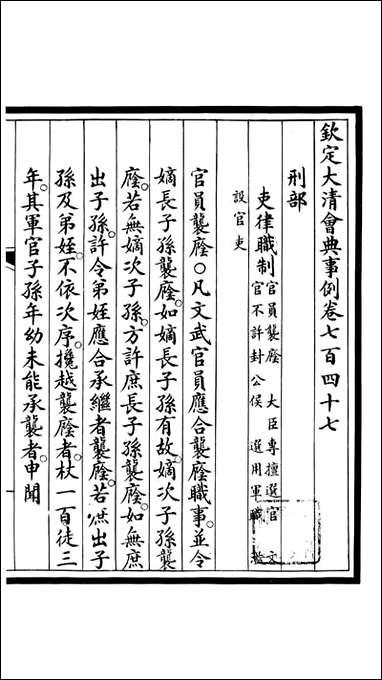 欽定大清會典事例卷七百四十七
刑部
吏律職制官員襲廕 大臣專擅選官 文
官不許封公侯 選用軍職 濫
設官吏
官員襲廕○凡文武官員應合襲廕職事。並令
嫡長子孫襲廕。如嫡長子孫有故。嫡次子孫襲
廕。若無嫡次子孫。方許庶長子孫襲廕。如無庶
出子孫。許令弟姪應合承繼者襲廕。若庶出子
孫及弟姪。不依次序。攙越襲廕者。杖一百徒三
年。其軍官子孫年幼未能承襲者。申聞